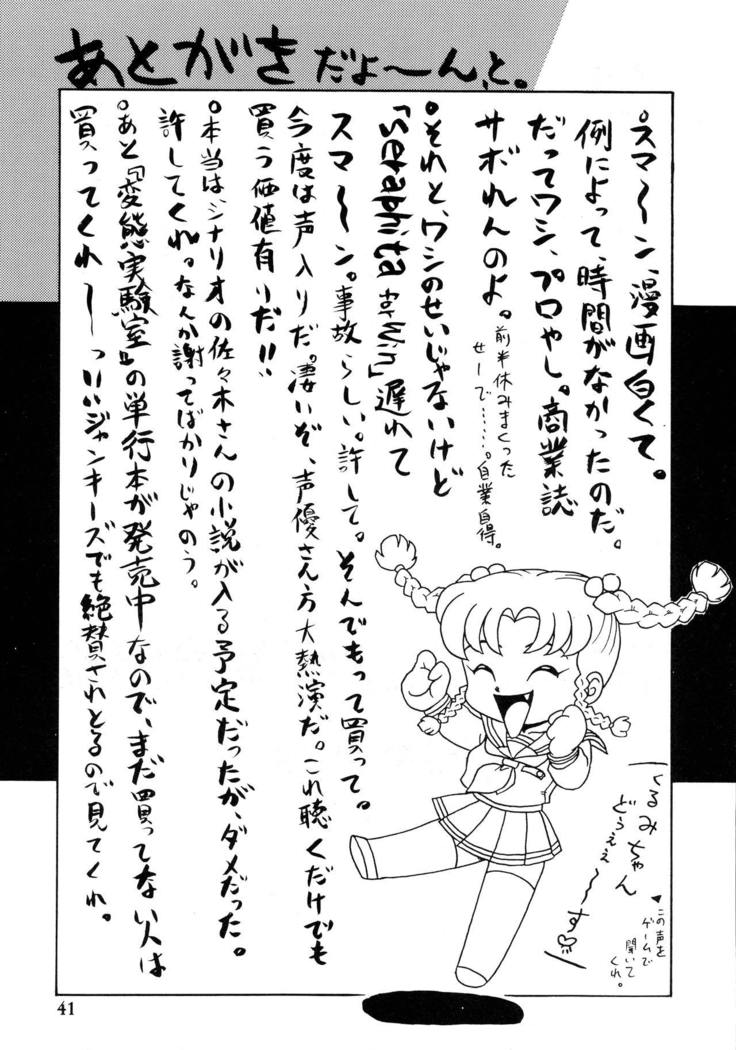 あとがきだょ〜ん、と。
°スマ〜ン、漫画白くて。
例によって、時間がなかったのだ。
だってワシ、プロやし。商業誌
サボれんのよ。前半休みまくった
せーで……。自業自得。
°それと、ワシのせいじゃないけど
「Seraphita for Win」遅れて
スマ〜ン。事故らしい。許して。そんでもって買って。
今度は声入りだ。凄いぞ、声優さん方大熱演だ。これ聴くだけでも
買う価値有りだ!!
°本当はシナリオの佐々木さんの小説が入る予定だったが、ダメだった。
許してくれ。なんか謝ってばかりじゃのう。
°あと『変態実験室』の単行本が発売中なので、まだ買ってない人は
買ってくれ〜〜っ いいジャンキーズでも絶賛されとるので見てくれ。
くるみちゃん
どうぇぇ〜す♡
▼この声を
ゲームで
聞いて
くれ。
41